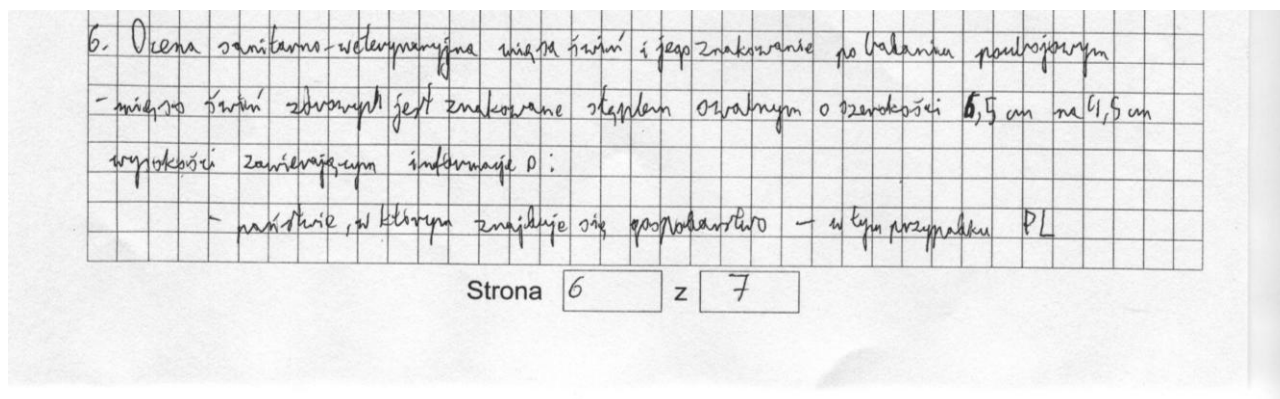 6. Ocena sanitarno-weterynaryjna mięsa świń i jego znakowanie po badaniu poubojowym
- mięso świń zdrowych jest znakowane stęplem owalnym o szerokości 6,5 cm na 4,5 cm
wysokości zawierającym informacje o:
- państwie, w którym znajduje się gospodarstwo - w tym przypadku PL
Strona 6 z 7